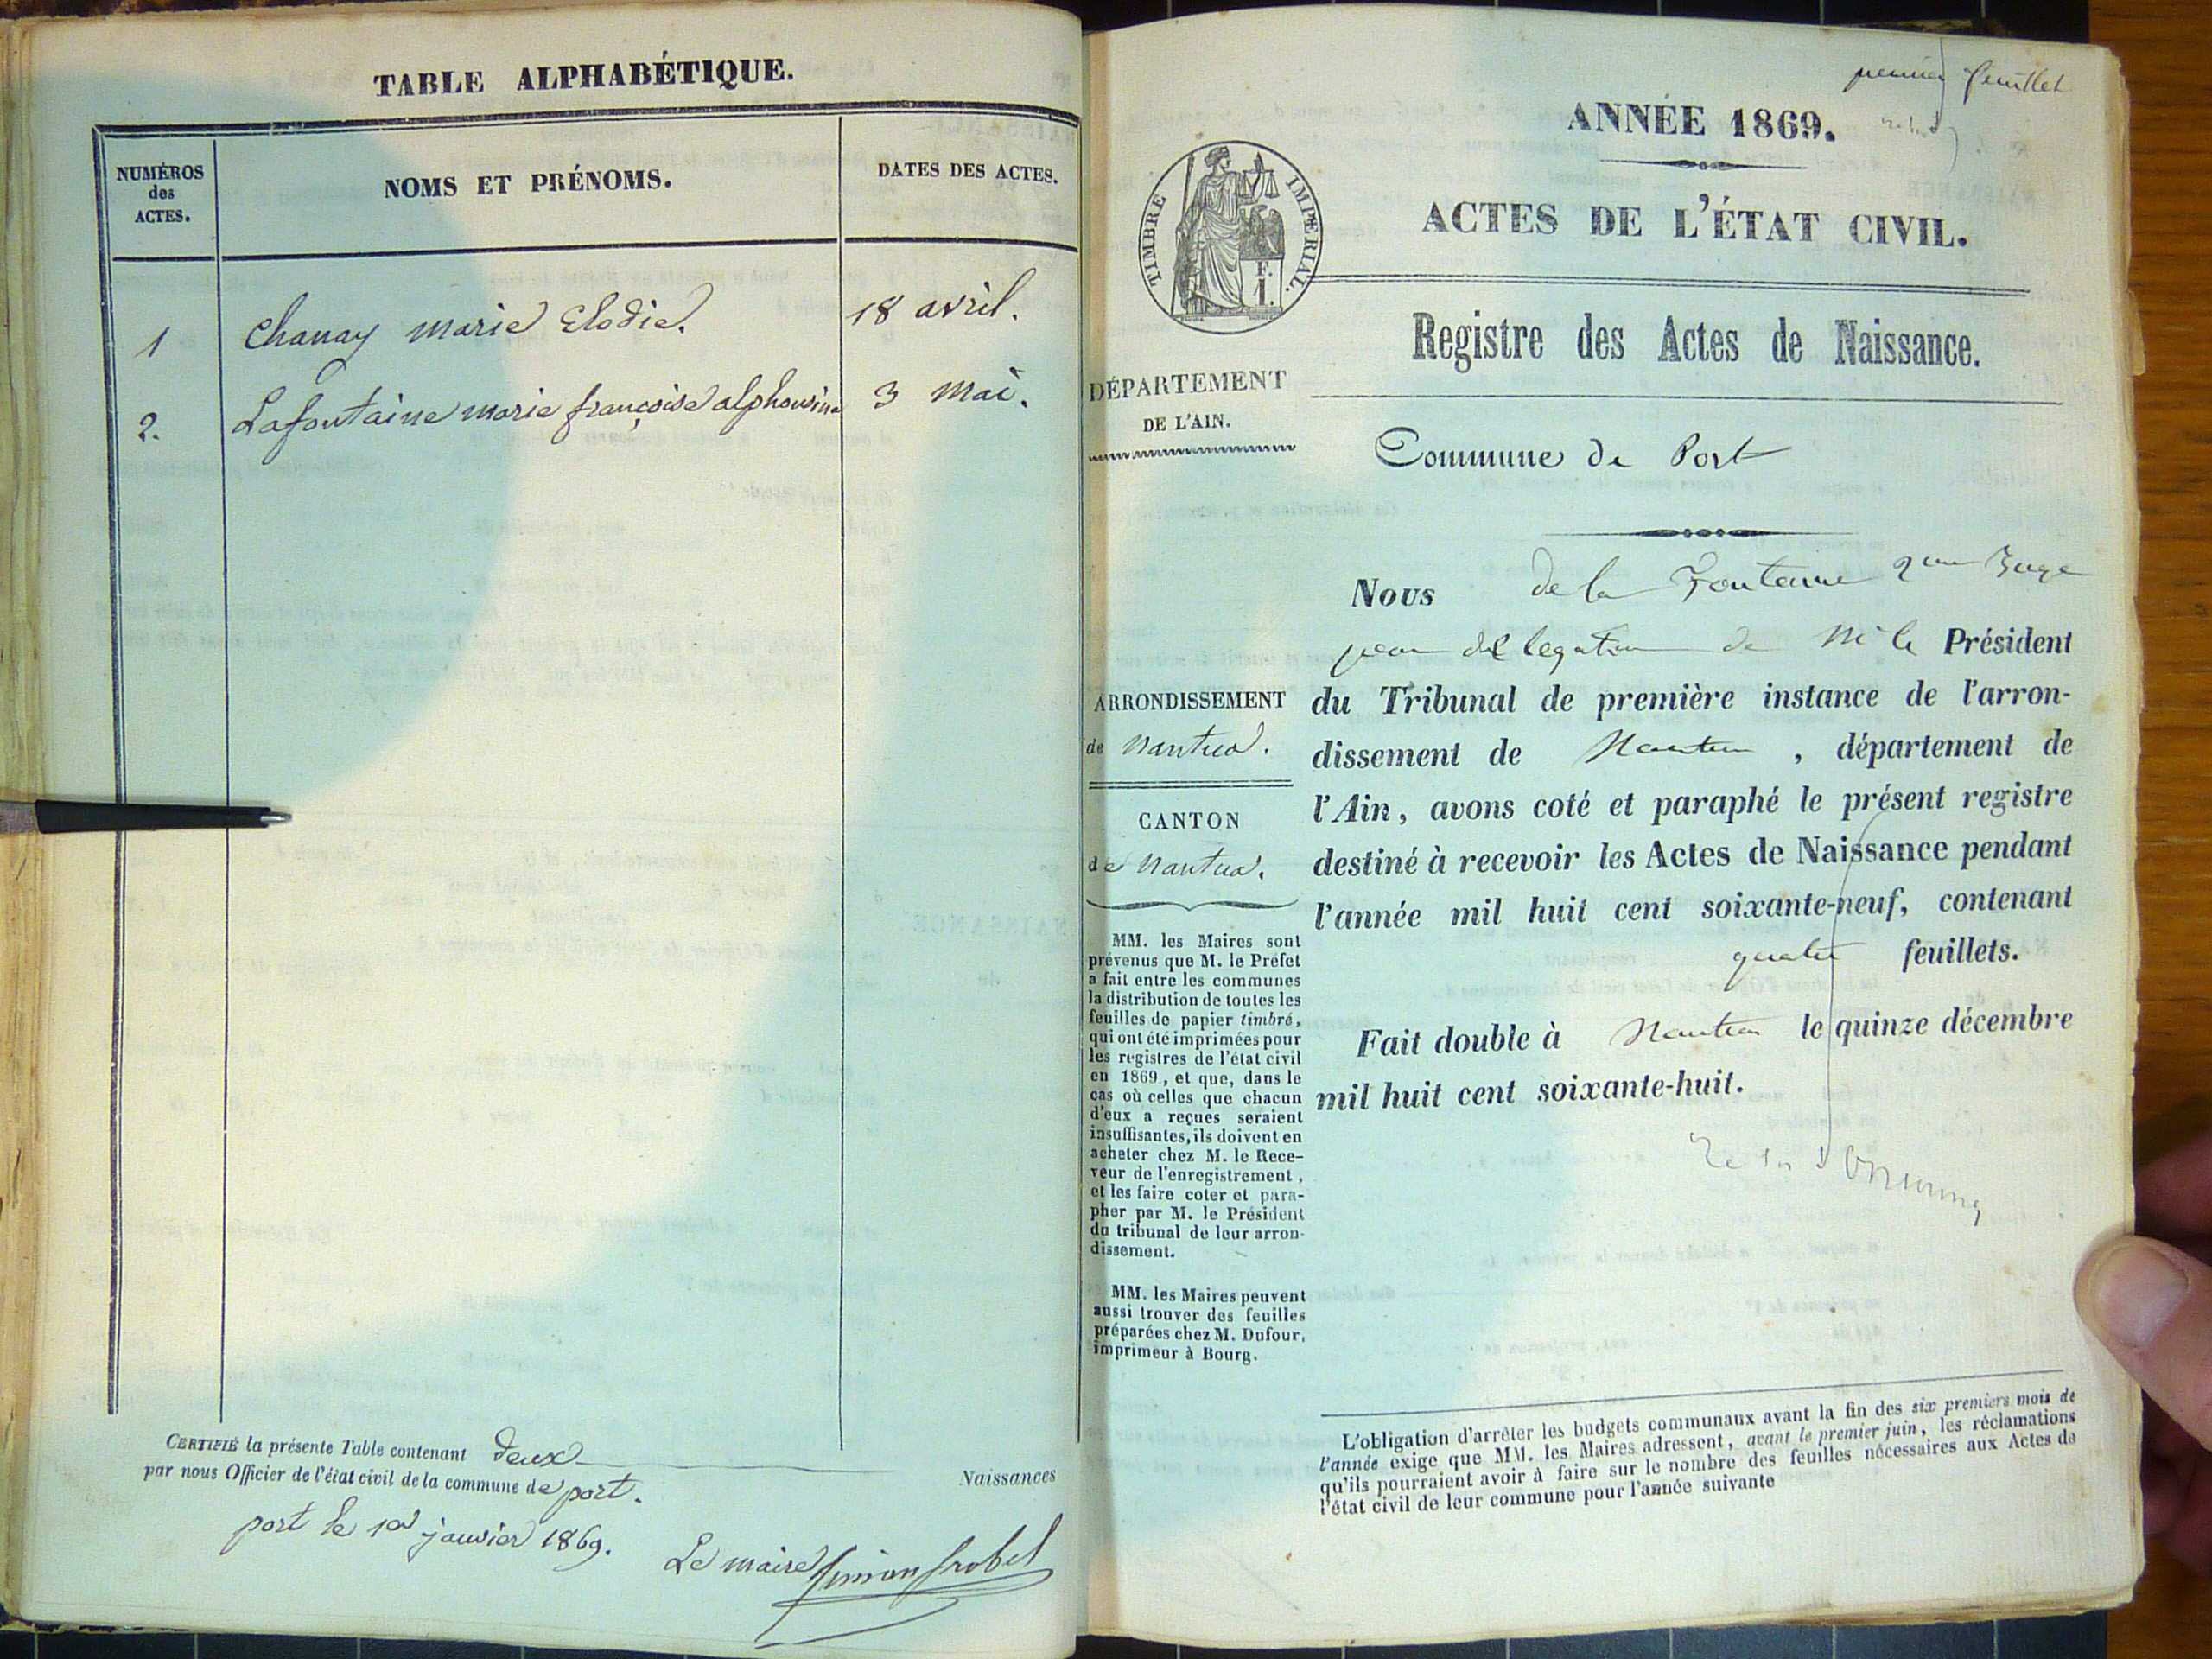 TABLE ALPHABÉTIQUE.
NUMÉROS
des
ACTES.
NOMS ET PRÉNOMS.
DATES DES ACTES.
1 Chanay marie Elodie. 18 avril.
2. Lafontaine marie françoise alphonsine 3 mai.
CERTIFIÉ la présente Table contenant deux Naissances
par nous Officier de l'état civil de la commune de port.
port le 1er janvier 1869.
Le maire
premier feuillet
ANNÉE 1869.
TIMBRE IMPÉRIAL.
F.
1.
ACTES DE L'ÉTAT CIVIL.
Registre des Actes de Naissance.
DÉPARTEMENT
DE L'AIN.
Commune de Port
ARRONDISSEMENT
de Nantua.
CANTON
de Nantua.
MM. les Maires sont
prévenus que M. le Préfet
a fait entre les communes
la distribution de toutes les
feuilles de papier timbré,
qui ont été imprimées pour
les registres de l'état civil
en 1869, et que, dans le
cas où celles que chacun
d'eux a reçues seraient
insuffisantes, ils doivent en
acheter chez M. le Rece-
veur de l'enregistrement,
et les faire coter et para-
pher par M. le Président
du tribunal de leur arron-
dissement.
MM. les Maires peuvent
aussi trouver des feuilles
préparées chez M. Dufour,
imprimeur à Bourg.
Nous de la Fontaine Juge
par délégation de M le Président
du Tribunal de première instance de l'arron-
dissement de Nantua, département de
l'Ain, avons coté et paraphé le présent registre
destiné à recevoir les Actes de Naissance pendant
l'année mil huit cent soixante-neuf, contenant
quatre feuillets.
Fait double à Nantua le quinze décembre
mil huit cent soixante-huit.
L'obligation d'arrêter les budgets communaux avant la fin des six premiers mois de
l'année exige que MM. les Maires adressent, avant le premier juin, les réclamations
qu'ils pourraient avoir à faire sur le nombre des feuilles nécessaires aux Actes de
l'état civil de leur commune pour l'année suivante